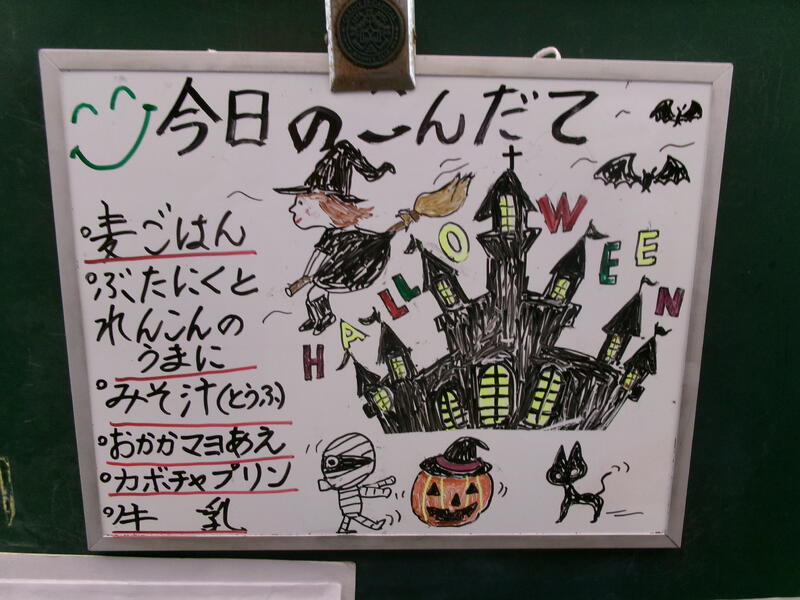 今日のこんだて
HALLOWEEN
麦ごはん
ぶたにくと
れんこんの
うまに
みそ汁(とうふ)
おかかマヨあえ
カボチャプリン
牛 乳